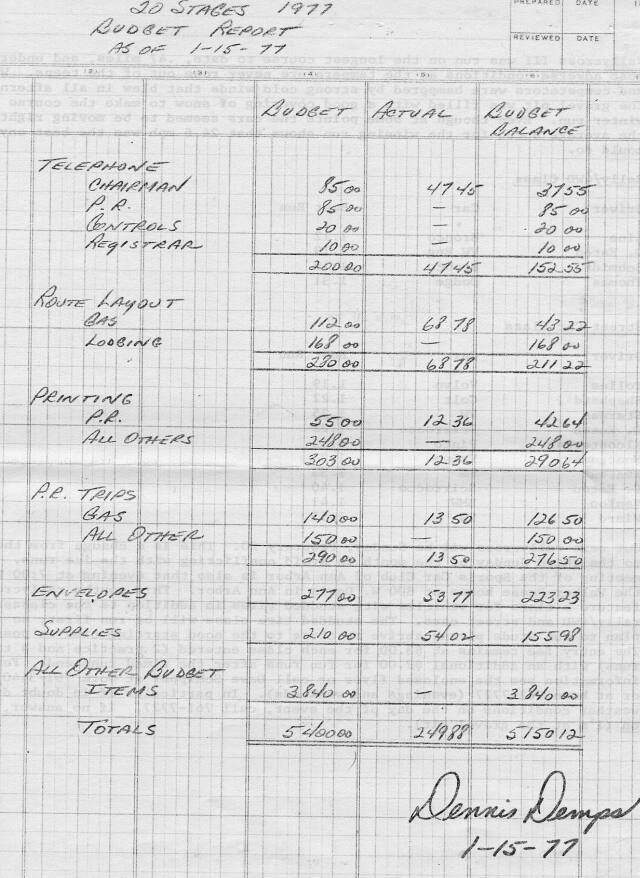 20 STAGES 1977
BUDGET REPORT
AS OF 1-15-77
PREPARED DATE
REVIEWED DATE
BUDGET ACTUAL BUDGET BALANCE
TELEPHONE
CHAIRMAN 85 00 47 45 37 55
P.R. 85 00 — 85 00
CONTROLS 20 00 — 20 00
REGISTRAR 10 00 — 10 00
200 00 47 45 152 55
ROUTE LAYOUT
GAS 112 00 68 78 43 22
LODGING 168 00 — 168 00
280 00 68 78 211 22
PRINTING
P.R. 55 00 12 36 42 64
ALL OTHERS 248 00 — 248 00
303 00 12 36 290 64
P.R. TRIPS
GAS 140 00 13 50 126 50
ALL OTHER 150 00 — 150 00
290 00 13 50 276 50
ENVELOPES 277 00 53 77 223 23
SUPPLIES 210 00 54 02 155 98
ALL OTHER BUDGET
ITEMS 3,840 00 — 3,840 00
TOTALS 5,400 00 249 88 5,150 12
Dennis Demps
1-15-77